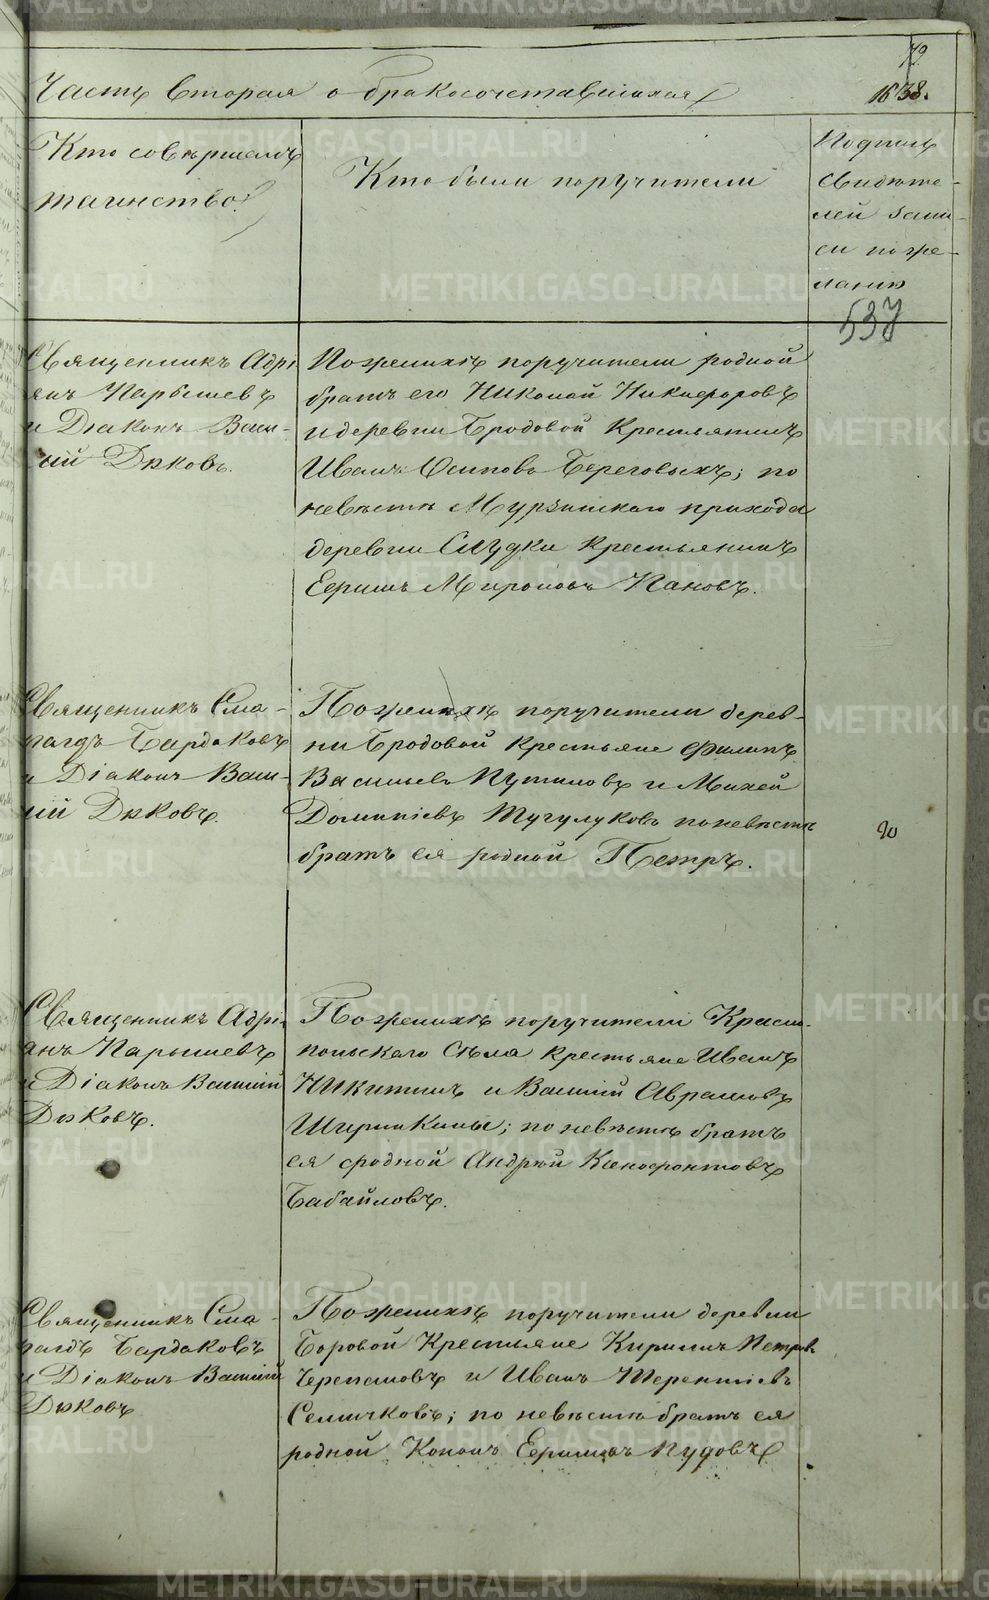 Часть вторая о бракосочетавшихся
1838.
Кто совершалъ
таинство?
Кто были поручители
Подпись
свидѣте-
лей запи-
си по же-
ланію
537
Священникъ Адрі
анъ Парышевъ
и Діаконъ Васи-
лій Дьковъ.
По женихѣ поручители родной
братъ его Николай Никифоровъ
и деревни Бродовой Крестьянинъ
Иванъ Осиповъ Береговыхъ; по
невѣстѣ Мурзинскаго прихода
деревни Слудки крестьянинъ
Ефимъ Мироновъ Пановъ.
Священникъ Сма-
рагдъ Бардаковъ
и Діаконъ Васи-
лій Дьковъ.
По женихѣ поручители дерев-
ни Бродовой крестьяне Филипъ
Васильевъ Путиловъ и Михей
Доментіевъ Тугулуковъ по невѣстѣ
братъ ея родной Петръ.
Священникъ Адрі
анъ Парышевъ
и Діаконъ Василій
Дьковъ.
По женихѣ поручители Красно-
польскаго Села крестьяне Иванъ
Никитинъ и Василій Аврамовъ
Ширинкины; по невѣстѣ братъ
ея сродной Андрей Ксенофонтовъ
Бабайловъ.
Священникъ Сма-
рагдъ Бардаковъ
и Діаконъ Василій
Дьковъ
По женихѣ поручители деревни
Боровой Крестьяне Кирилъ Петров
Черепановъ и Иванъ Терентіевъ
Семячковъ; по невѣстѣ братъ ея
родной Кононъ Ефимовъ Пудовъ
METRIKI.GASO-URAL.RU